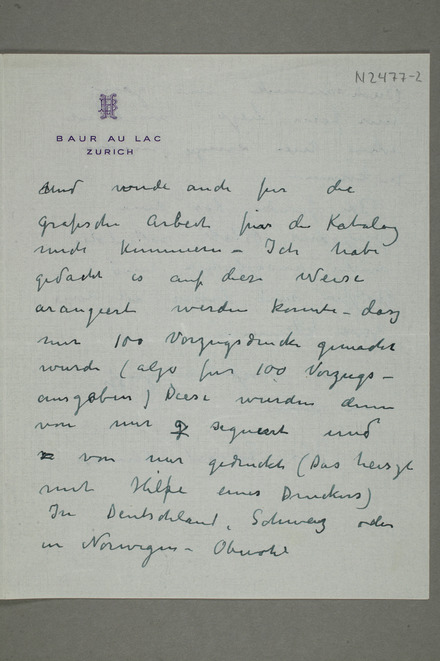 N 2477-2
BAUR AU LAC
ZURICH
und würde auch für die
grafische Arbeit für die Katalog
mich kümmern – Ich habe
gedacht es auf diese Weise
arangiert werden konnte – dass
nur 100 Vorzugsdrucke gemacht
wurde (also für 100 Vorzugs-
ausgaben) Diese wurden dann
von mir signiert und
von mir gedruckt (Das heisst
mit Hilfe eines Druckers)
In Deutschland, Schweiz oder
in Norwegen – Obwohl